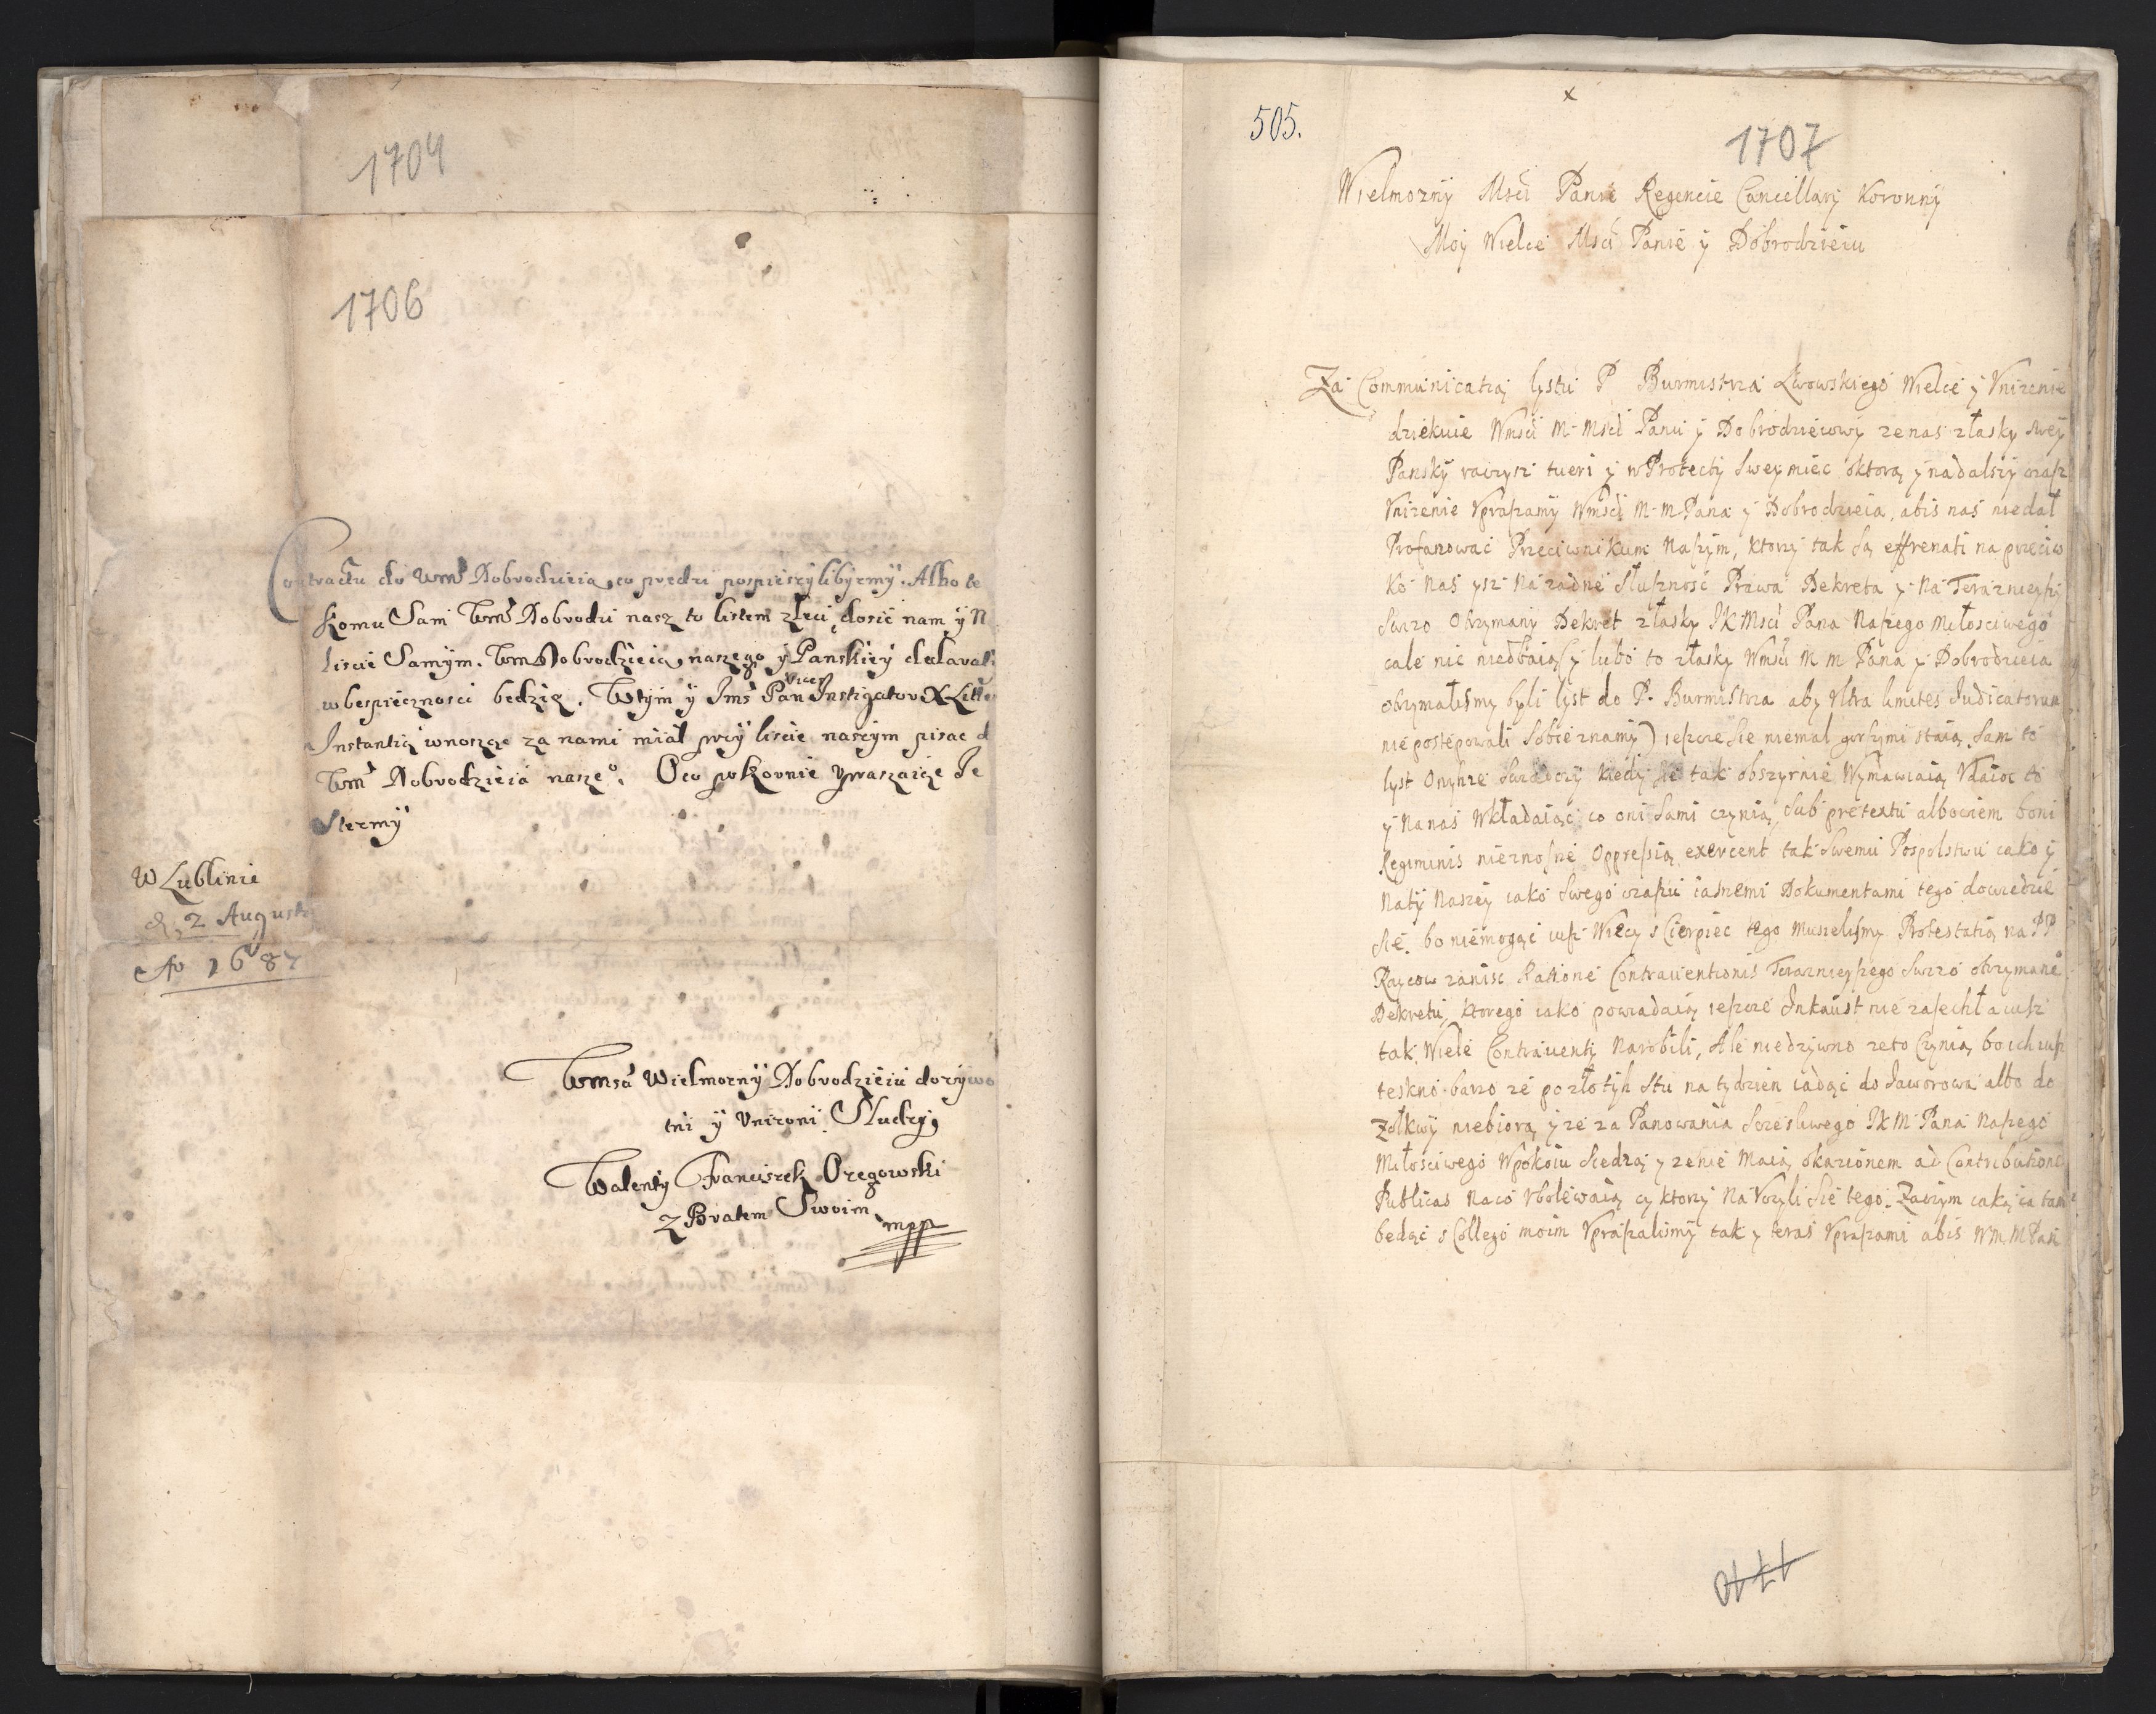 1704
1706
Contractu do Wmsci Dobrodzieia, co prędzi pospieszylibyzmy. Albo te
komu Sam Wms Dobrodzi nasz to listem zleci, dosić nam y N
liscie Samym. Wm Dobrodzieia naszego y Panskiey dalarati
w bespiecznosci będzię. Wtym y Ims Pan Vices Instigator X Litte
Instantią wnosząc za nami miał przÿ liscie naszym pisac d
Wm Dobrodzieia naszeo. Oco pokornie Vpraszaiąc Je
Stezmÿ
W Lublinie
d. 2 Augusti
Ao 1687
Wmsci Wielmoznÿ Dobrodzieiu dozÿwo
tni ÿ Vnizoni Sludzÿ
Walenty Franciszek Ozegowski
z Bratem Swoim mpp
505.
x
1707
Wielmoznÿ Msci Panie Regencie Cancellarÿ Koronnÿ
Moÿ Wielce Msci Panie ÿ Dobrodzieiu
Za Communicatią lystu P Burmistrza Lwowskiego Wielce ÿ Vnizenie
dziekuie Wmsci M Msci Panu ÿ Dobrodzieiowÿ ze nas złasky sweÿ
Panskÿ raczysz tueri ÿ w Protectÿ Sweÿ miec oktorą ÿ nadalszÿ czasz
Vnizenie Vpraszamÿ Wmsci M M Pana ÿ Dobrodzieia, abis nas niedał
Profanować Przeciwnikum Naszym, ktorzÿ tak Są effrenati na przeciw
ko nas ysz na zadne słusznosć Prawa Dekreta ÿ na Teraznieyszi
Swizo Otrzymanÿ Dekret złaskÿ JK Msci Pana Naszego Miłosciwego
cale nic niedbaią (ÿ lubo to złaskÿ Wmsci M M Pana ÿ Dobrodzieia
otrzymalismy byli lyst do P. Burmistrza aby Vltra limites Iudicatorum
nie postępowali Sobie znamÿ) ieszcze Sie niemal gorszymi staią. Sam to
lyst Onychze Swiadczÿ kiedÿ sie tak obszyrnie Wymawiaią Vdaiąc to
ÿ na nas Wkładaiąc co oni Sami czynią, Sub pretextu albowiem boni
Regiminis nieznosne Oppressią exercent tak Swemu Pospolstwu iako ÿ
Natÿ Naszeÿ iako Swego czaszu iasnemi Dokumentami tego dowiedzie
sie. bo niemogąc iusz Więcÿ scierpiec tego Musielismÿ Protestatią na PP
Raycow zaniść Ratione Contrauentionis Teraznieyszego Swizo otrzymaneo
Dekretu, ktorego iako powiadaią ieszcze Inkaust nie zasechł a iusz
tak Wiele Contrauentÿ Narobili, Ale niedziwno zeto Czynią, bo ich iusz
teskno barzo ze po złotÿh Stu na tydzien iadąc do Jaworowa albo do
Zołkwÿ niebiorą, ÿ ze za Panowania Szczesliwego JK M Pana Naszego
Miłosciwego Wpokoiu Siedzą ÿ zenie Maią okazionem ad Contributiones
Publicas naco Vbolewaią cÿ ktorzÿ Na Vczyli Sie tego. Zaczym iako ia tam
będąc s Collegÿ moim Vpraszalismÿ tak ÿ teras Vpraszami abis Wm M Pan
1710